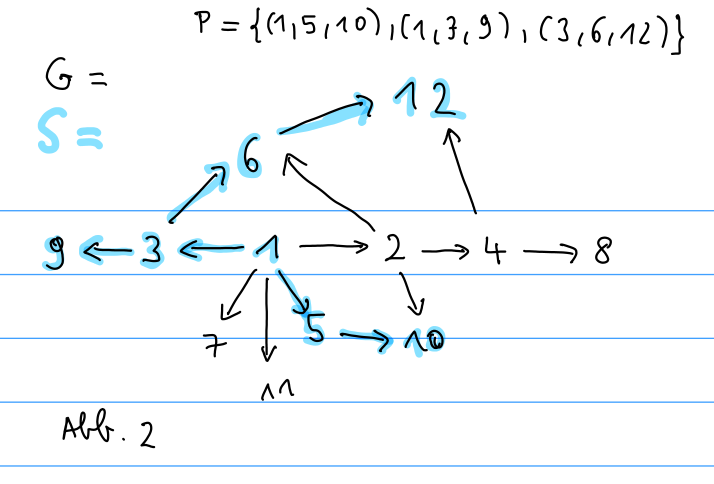 P = {(1,5,10),(1,3,9),(3,6,12)}
G =
S =
12
6
9 3 1 2 4 8
7 5 10
11
Abb. 2